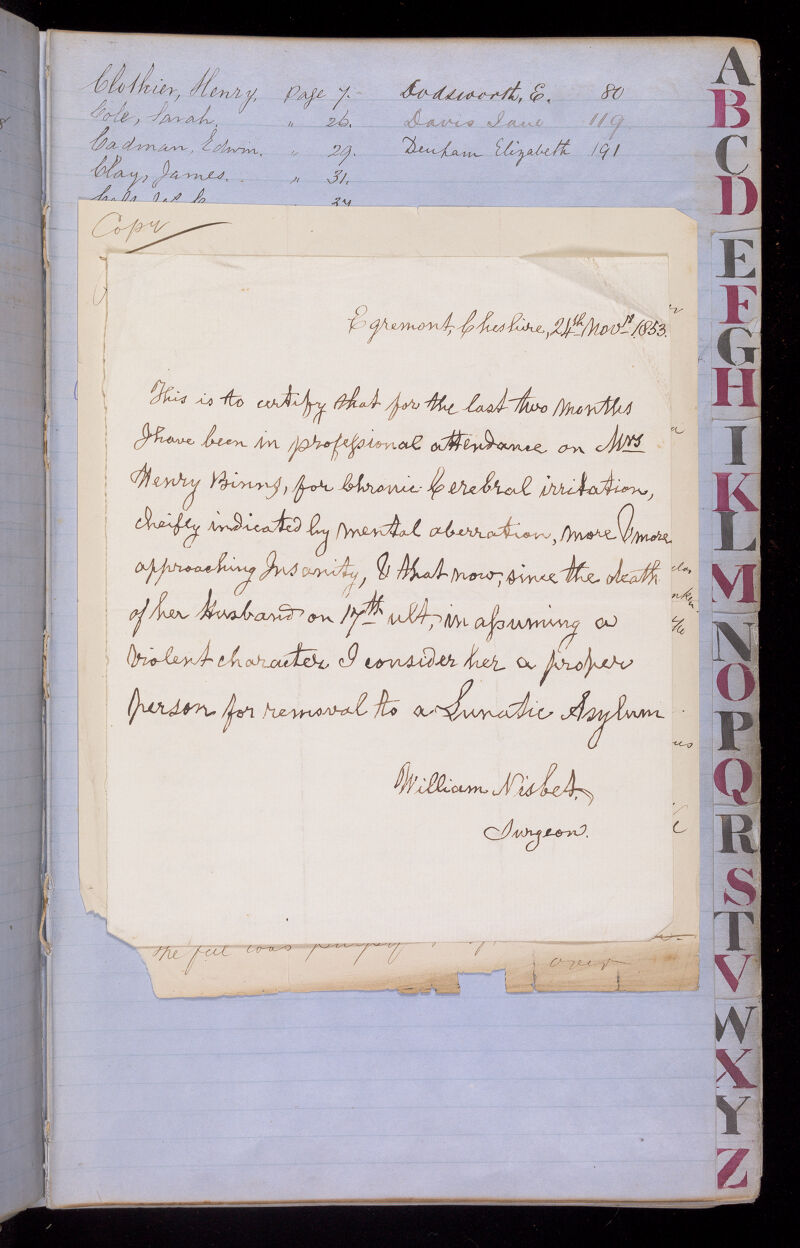 Clothier, Henry. Page 7.
Cole, Sarah. " 26.
Cadman, Edwin. " 29.
Clay, James. " 31.
37
Dodsworth, E. 80
Davis Jane 119
Denham Elizabeth 191
Copy
Egremont, Cheshire, 24th Novr. 1853.
This is to certify that for the last two months
I have been in professional attendance on Mrs
Henry Binns, for Chronic Cerebral irritation,
cheifly indicated by mental aberration, more & more
approaching Insanity, & that now, since the death
of her Husband on 17th ult, in assuming a
violent character I consider her a proper
person for removal to a Lunatic Asylum
William Nisbet,
Surgeon.
the
over
A
B
C
D
E
F
G
H
I
K
L
M
N
O
P
Q
R
S
T
V
W
X
Y
Z